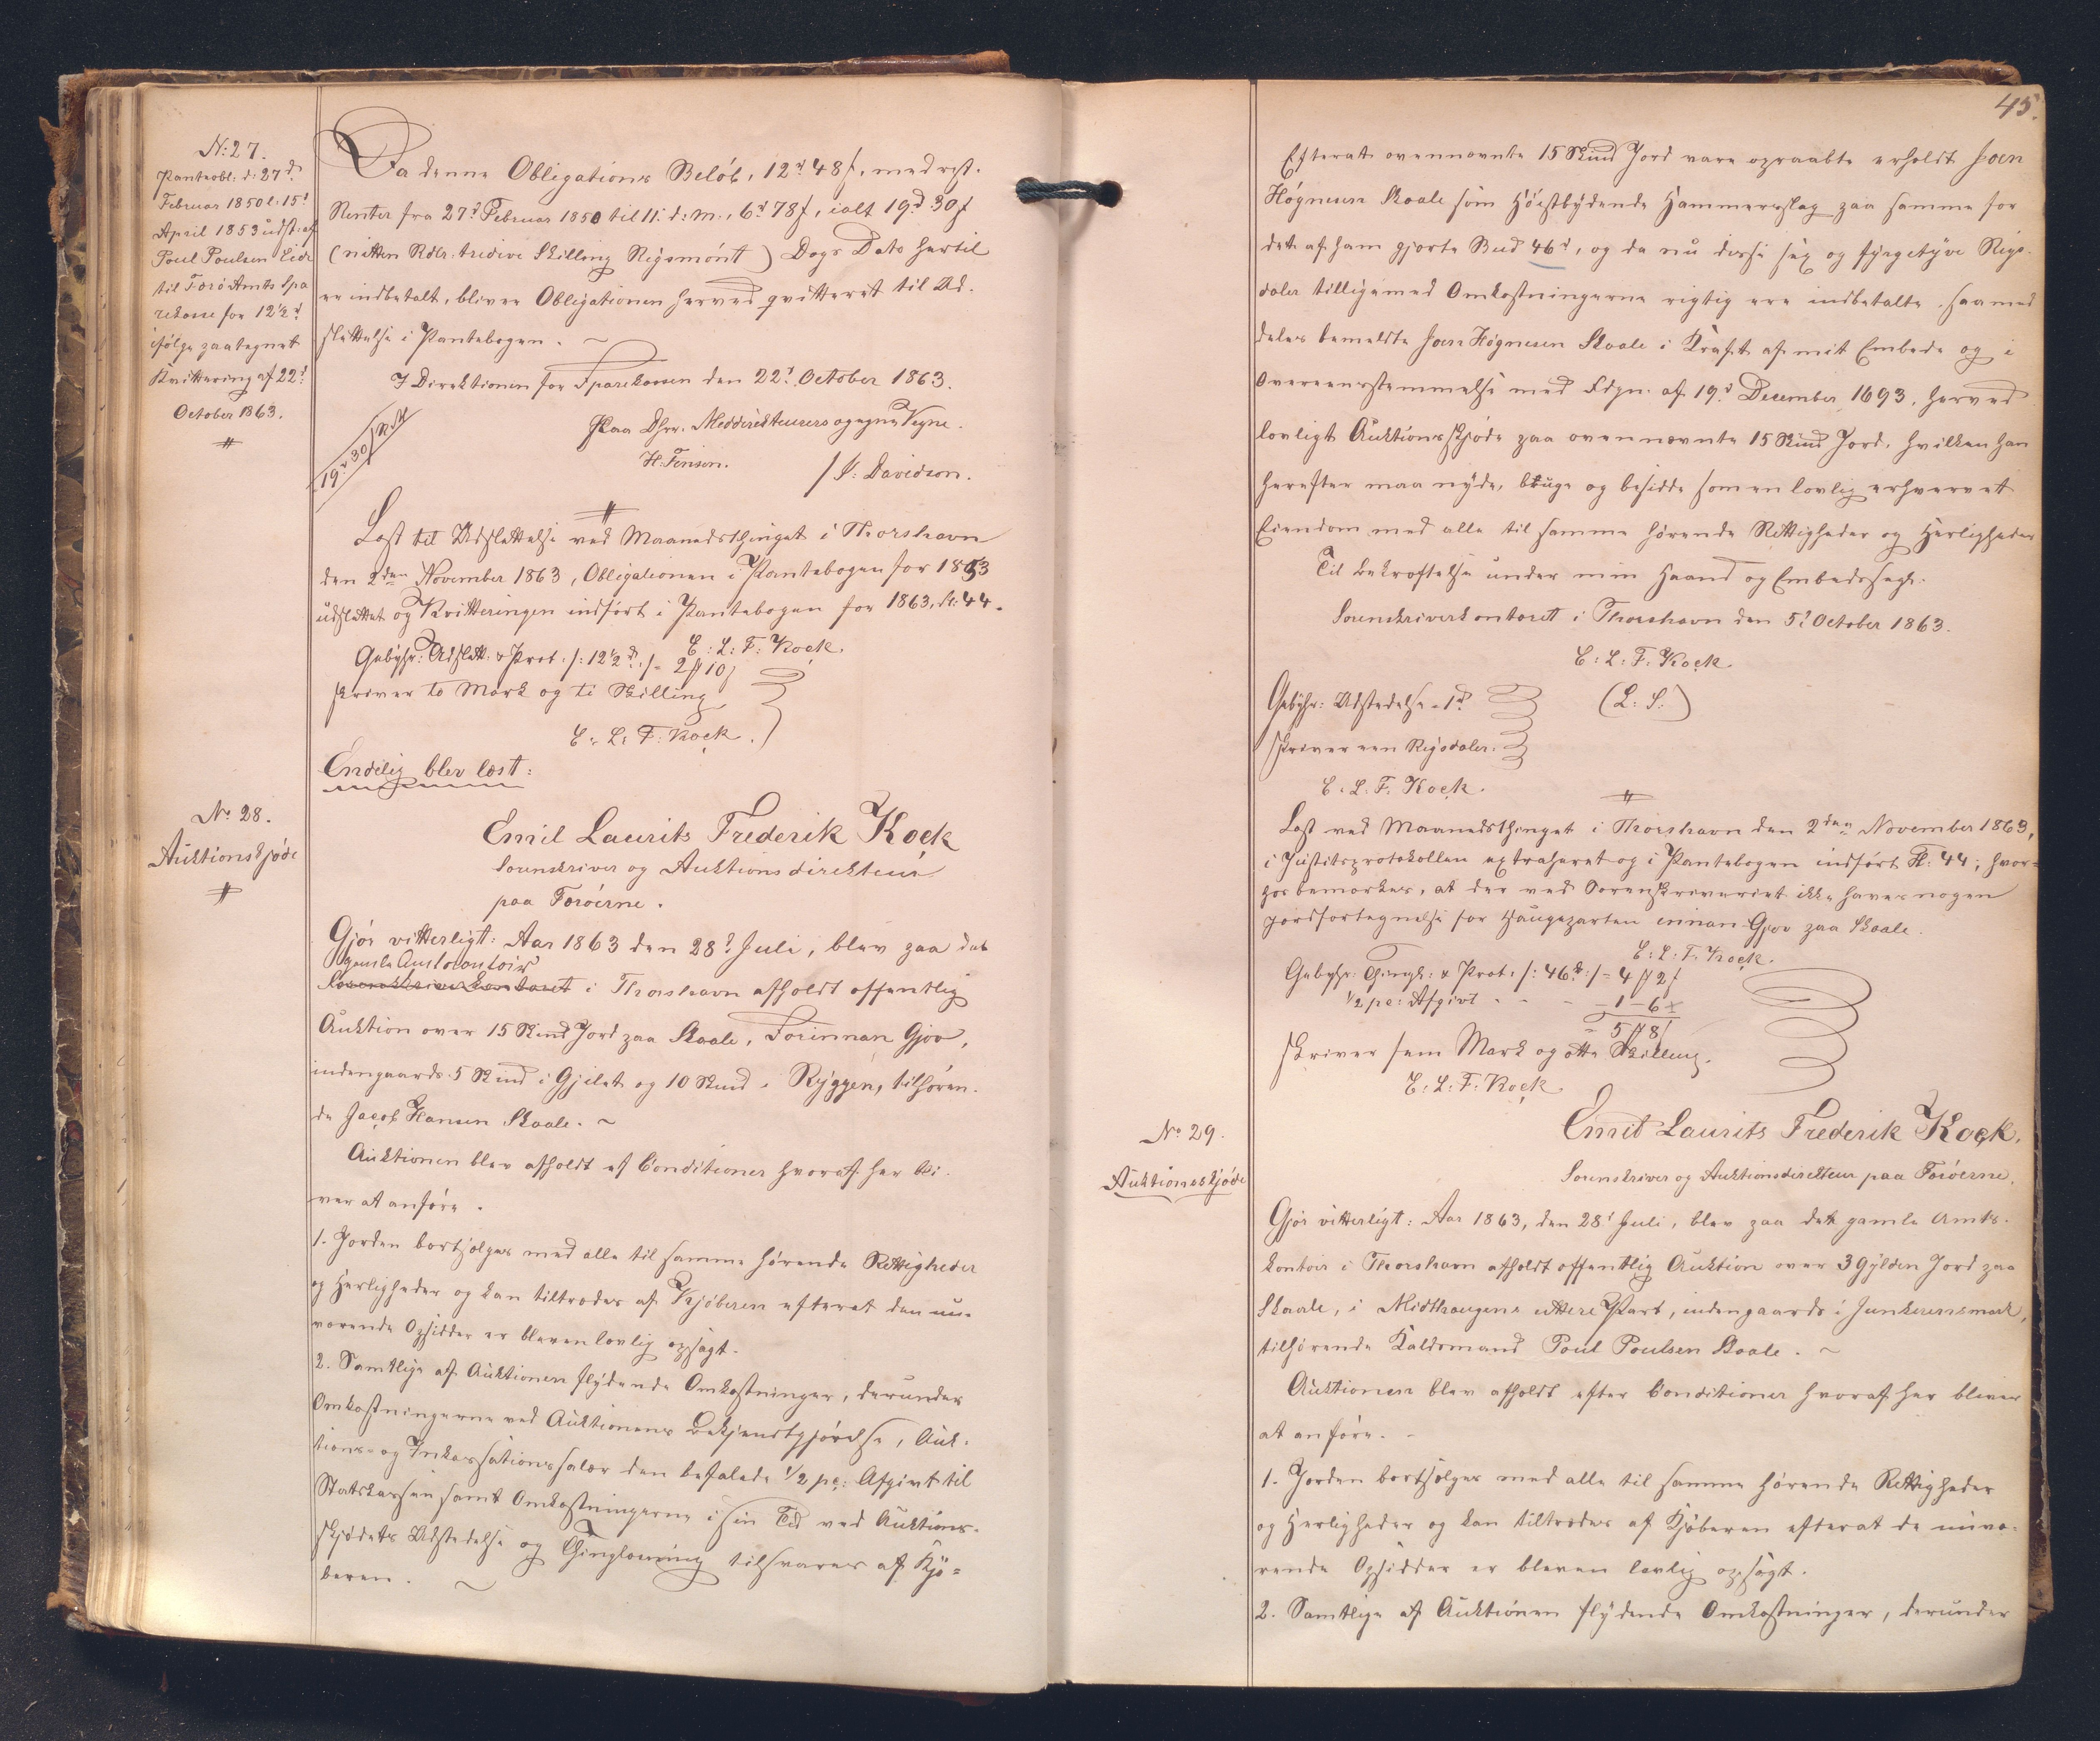 N: 27.
Panteobl: d: 27d
Februar 1850 l: 15d
April 1853 udst: af
Poul Poulsen Eide
til Færø Amts Spa
rekasse for 12½d
ifølge paategnet
Kvittering af 22d
October 1863.
Da denne Obligations Beløb, 12d 48 ſ, med rest.
Renter fra 27d Februar 1850 til 11: d: M:, 6d 78 ſ, ialt 19d 30 ſ
(nitten Rdlr: tredive Skilling Rigsmónt) Dags Dato hertil
er indbetalt, bliver Obligationen herved qvitteret til Ud-
slettelse i Pantebogen. ~
I Direktionen for Sparekassen den 22d October 1863.
Paa Dhrr. Meddirekteurers og egne Vegne.
H: Finsen. / J: Davidson.
19d 30 ſ
Læst til Udslettelse ved Maanedsthinget i Thorshavn
den 2den November 1863, Obligationen i Pantebogen for 1853
udslettet og Kvitteringen indført i Pantebogen for 1863, fl: 44.
E: L: F: Kock.
Gebyhr: Udslett: & Prot: /: 12½d :/ = 2 # 10 ſ
skriver to Mark og ti Skilling
E: L: F: Kock.
Endelig blev læst:
No 28.
Auktionskjøde
Emil Laurits Frederik Kock
Sorenskriver og Auktionsdirekteur
paa Færøerne.
Gjør vitterligt: Aar 1863 den 28d Juli, blev paa det
gamle Amtscontoir
Sorenskriverkontoret i Thorshavn afholdt offentlig
Auktion over 15 Skind Jord paa Skaale, Forinnan Gjov,
indengaards 5 Skind i Gjilet og 10 Skind i Ryggen, tilhøren-
de Jacob Hansen Skaale. ~
Auktionen blev afholdt ef Conditioner hvoraf her bli-
ver at anføre.
1. Jorden bortsælges med alle til samme hørende Rettigheder
og Herligheder og kan tiltrædes af Kjøberen efterat den nu-
værende Opsidder er bleven lovlig opsagt.
2. Samtlige af Auktionen flydende Omkostninger, derunder
Omkostningerne ved Auktionens Bekjendtgjørelse, Auk-
tions- og Inkassationssalær den befalede ½ pc: Afgivt til
Statskassen samt Omkostningerne i sin Tid ved Auktions-
skjødets Udstedelse og Thinglæsning tilsvares af Kjø-
beren. ~
45.
Efterat ovennævnte 15 Skind Jord vare opraabte erholdt Joen
Høgnesen Skaale som Høistbydende Hammerslag paa samme for
det af ham gjorte Bud 46d, og da nu disse sex og fyrgetyve Rigs-
daler tilligemed Omkostningerne rigtig ere indbetalte, saa med-
deles bemeldte Joen Høgnesen Skaale i Kraft af mit Embede og i
Overeensstemmelse med Fdgn: af 19d December 1693, herved
lovligt Auktionsskjøde paa ovennævnte 15 Skind Jord, hvilken han
herefter maa nyde, bruge og besidde som en lovlig erhvervet
Eiendom med alle til samme hørende Rettigheder og Herligheder
Til Bekræftelse under min Haand og Embedssegl.
Sorenskriverkontoret i Thorshavn den 5d October 1863.
E: L: F: Kock.
(L: S:)
Gebyhr: Udstedelse = 1d
skriver een Rigsdaler.
E: L: F: Kock.
Læst ved Maanedsthinget i Thorshavn den 2den November 1863,
i Justitsprotokollen extraheret og i Pantebogen indført Fl: 44; hvor-
hos bemærkes, at der ved Sorenskriveriet ikke haves nogen
Jordfortegnelse for Haugeparten innan Gjov paa Skaale.
E: L: F: Kock.
Gebyhr: Thingl: & Prot: /: 46d :/ = 4 # 2 ſ
½ pc: Afgivt - - - 1 - 6
= 5 # 8 ſ
skriver fem Mark og otte Skilling.
E: L: F: Kock.
No 29.
Auktionsskjøde
Emil Laurits Frederik Kock.
Sorenskriver og Auktionsdirekteur paa Færøerne.
Gjør vitterligt: Aar 1863, den 28d Juli, blev paa det gamle Amts-
kontoir i Thorshavn afholdt offentlig Auktion over 3 Gylden Jord paa
Skaale, i Midthaugens uttere Part, indengaards i Junkerensmark,
tilhørende Kaldsmand Poul Poulsen Skaale. ~
Auktionen blev afholdt efter Conditioner hvoraf her bliver
at anføre. -
1. Jorden bortsælges med alle til samme hørende Rettigheder
og Herligheder og kan tiltrædes af Kjøberen efterat de nuvæ-
rende Opsidder er bleven lovlig opsagt.
2. Samtlige af Auktionen flydende Omkostninger, derunder